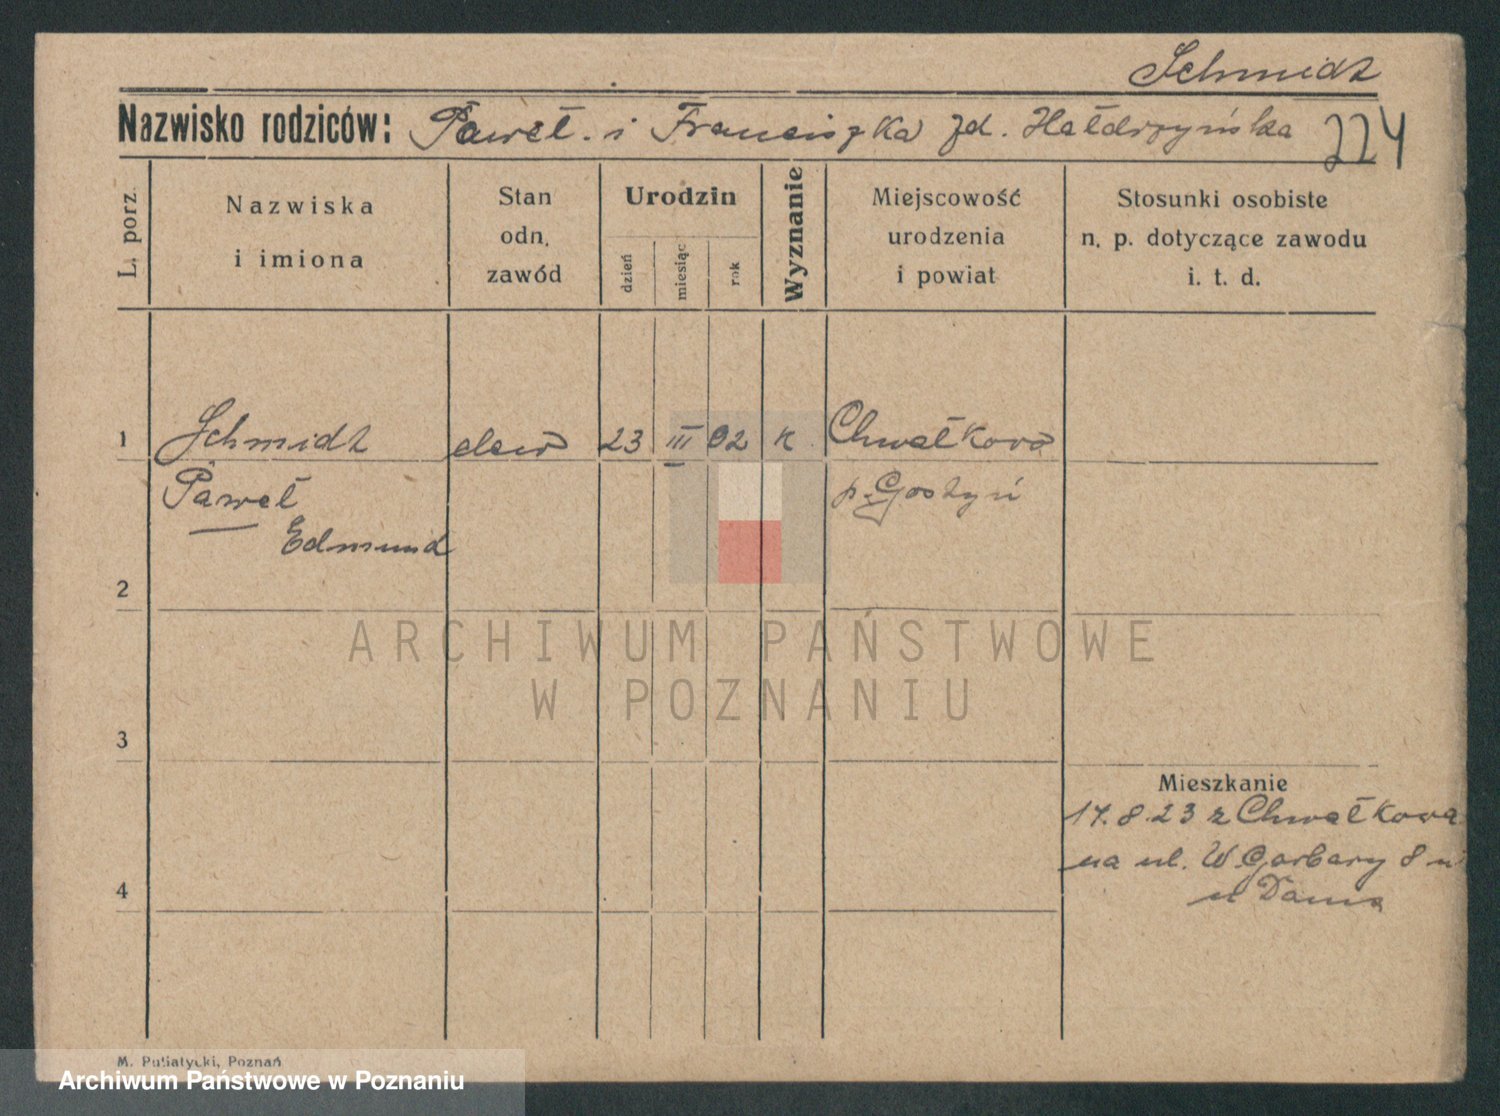 Schmidt
Nazwisko rodziców: Paweł i Franciszka zd. Hałdrzyńska 224
L. porz.
Nazwiska
i imiona
Stan
odn.
zawód
Urodzin
dzień
miesiąc
rok
Wyznanie
Miejscowość
urodzenia
i powiat
Stosunki osobiste
n. p. dotyczące zawodu
i. t. d.
1 Schmidt 23 III 02 k Chwałkowo
Paweł p. Gostyń
Edmund
2
ARCHIWUM PAŃSTWOWE
W POZNANIU
3
Mieszkanie
17.8.23 z Chwałkowa
na ul. W Garbary 8
4
M. Putiatycki, Poznań
Archiwum Państwowe w Poznaniu